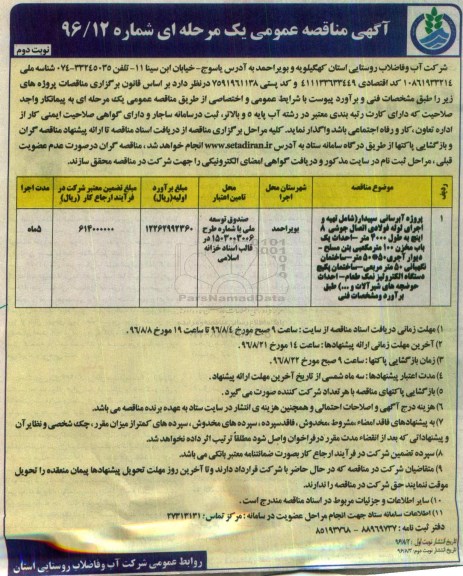 آگهی مناقصه عمومی یک مرحله ای شماره ۹۶/۱۲
نوبت دوم
شرکت آب وفاضلاب روستایی استان کهگیلویه و بویراحمد به آدرس یاسوج- خیابان ابن سینا ۱۱- تلفن ۳۳۲۴۵۰۳۵-۰۷۴ شناسه ملی
۱۰۸۶۱۹۳۳۲۱۴ کد اقتصادی ۴۱۱۱۳۳۶۳۳۴۴۹ و کد پستی ۷۵۹۱۹۶۱۱۳۸ درنظر دارد بر اساس قانون برگزاری مناقصات پروژه های
زیر را طبق مشخصات فنی و برآورد پیوست با شرایط عمومی و اختصاصی از طریق مناقصه عمومی یک مرحله ای به پیمانکار واجد
صلاحیت که دارای کارت رتبه بندی معتبر در رشته آب پایه ۵ و بالاتر، ثبت درسامانه ساجار و دارای گواهی صلاحیت ایمنی کار از
اداره تعاون ،کار و رفاه اجتماعی باشد واگذار نماید. کلیه مراحل برگزاری مناقصه از دریافت اسناد مناقصه تا ارائه پیشنهاد مناقصه گران
و بازگشایی پاکتها از طریق درگاه سامانه ستاد به آدرس www.setadiran.ir انجام خواهد شد، مناقصه گران درصورت عدم عضویت
قبلی ، مراحل ثبت نام در سایت مذکور و دریافت گواهی امضای الکترونیکی را جهت شرکت در مناقصه محقق سازند.
ردیف
موضوع مناقصه
شهرستان محل اجرا
محل تامین اعتبار
مبلغ برآورد اولیه(ریال)
مبلغ تضمین معتبر شرکت در فرآیند ارجاع کار (ریال)
مدت اجرا
۱
پروژه آبرسانی سپیدار(شامل تهیه و
اجرای لوله فولادی اتصال جوشی ۸
اینچ به طول ۴۰۰۰ متر –احداث یک
باب مخزن ۱۰۰ مترمکعبی بتن مسلح -
دیوار آجری ۵۰@۵۰ متر –ساختمان
نگهبانی ۵۰ متر مربعی–ساختمان پکیج
دستگاه الکترولیز نمک طعام–احداث
حوضچه های شیرآلات و ...) طبق
برآورد ومشخصات فنی
بویراحمد
صندوق توسعه
ملی با شماره طرح
۱۵۰۳۰۰۳۰۰۶ در
قالب اسناد خزانه
اسلامی
۱۲۲۶۲۹۹۲۳۶۰
۶۱۴۰۰۰۰۰۰
۵ماه
۱) مهلت زمانی دریافت اسناد مناقصه از سایت : ساعت ۹ صبح مورخ ۹۶/۸/۴ تا ساعت ۱۹ مورخ ۹۶/۸/۸.
۲) آخرین مهلت زمانی ارائه پیشنهادها : ساعت ۱۴ مورخ ۹۶/۸/۲۱
۳) زمان بازگشایی پاکتها : ساعت ۹ صبح مورخ ۹۶/۸/۲۲
۴) مدت اعتبار پیشنهادها : سه ماه شمسی از تاریخ آخرین مهلت ارائه پیشنهاد.
۵) بازگشایی پاکتهای مناقصه با هر تعداد شرکت کننده صورت می گیرد .
۶) هزینه درج آگهی و اصلاحات احتمالی و همچنین هزینه ی انتشار در سایت ستاد به عهده برنده مناقصه می باشد.
۷) به پیشنهادهای فاقد امضاء ،مشروط ،مخدوش ، فاقد سپرده ، سپرده های مخدوش ، سپرده های کمتر از میزان مقرر ، چک شخصی و نظایر آن
و پیشنهاداتی که بعد از انقضاء مدت مقرر در فراخوان واصل شود مطلقاً ترتیب اثر داده نخواهد شد.
۸) سپرده تضمین شرکت در فرآیند ارجاع کار بصورت ضمانتنامه معتبر بانکی می باشد.
۹) متقاضیان شرکت در مناقصه که در حال حاضر با شرکت قرارداد دارند و تا آخرین روز مهلت تحویل پیشنهادها پیمان منعقده را تحویل
موقت ننمایند حق شرکت در مناقصه را ندارند.
۱۰) سایر اطلاعات و جزئیات مربوط در اسناد مناقصه مندرج است .
۱۱) اطلاعات سامانه ستاد جهت انجام مراحل عضویت در سامانه : مرکز تماس : ۲۷۳۱۳۱۳۱
دفتر ثبت نامه : ۸۸۹۶۹۷۳۷ – ۸۵۱۹۳۷۶۸
تاریخ انتشار نوبت اول : ۹۶/۸/۲
تاریخ انتشار نوبت دوم:
روابط عمومی شرکت آب وفاضلاب روستایی استان
ParsNamadData